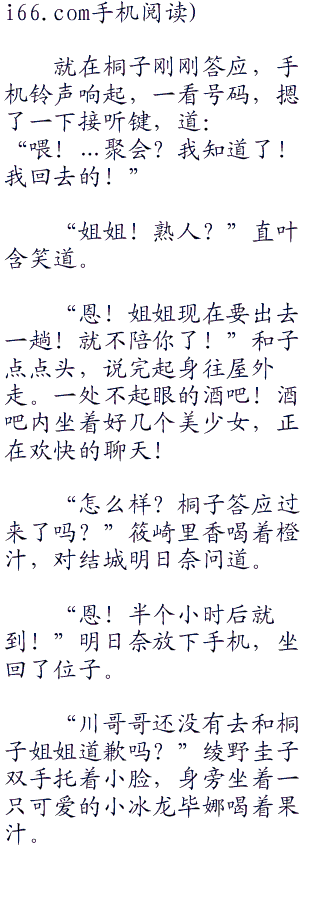 i66.com手机阅读)
就在桐子刚刚答应，手
机铃声响起，一看号码，摁
了一下接听键，道：
“喂！…聚会？我知道了！
我回去的！”
“姐姐！熟人？”直叶
含笑道。
“恩！姐姐现在要出去
一趟！就不陪你了！”和子
点点头，说完起身往屋外
走。一处不起眼的酒吧！酒
吧内坐着好几个美少女，正
在欢快的聊天！
“怎么样？桐子答应过
来了吗？”筱崎里香喝着橙
汁，对结城明日奈问道。
“恩！半个小时后就
到！”明日奈放下手机，坐
回了位子。
“川哥哥还没有去和桐
子姐姐道歉吗？”绫野圭子
双手托着小脸，身旁坐着一
只可爱的小冰龙毕娜喝着果
汁。